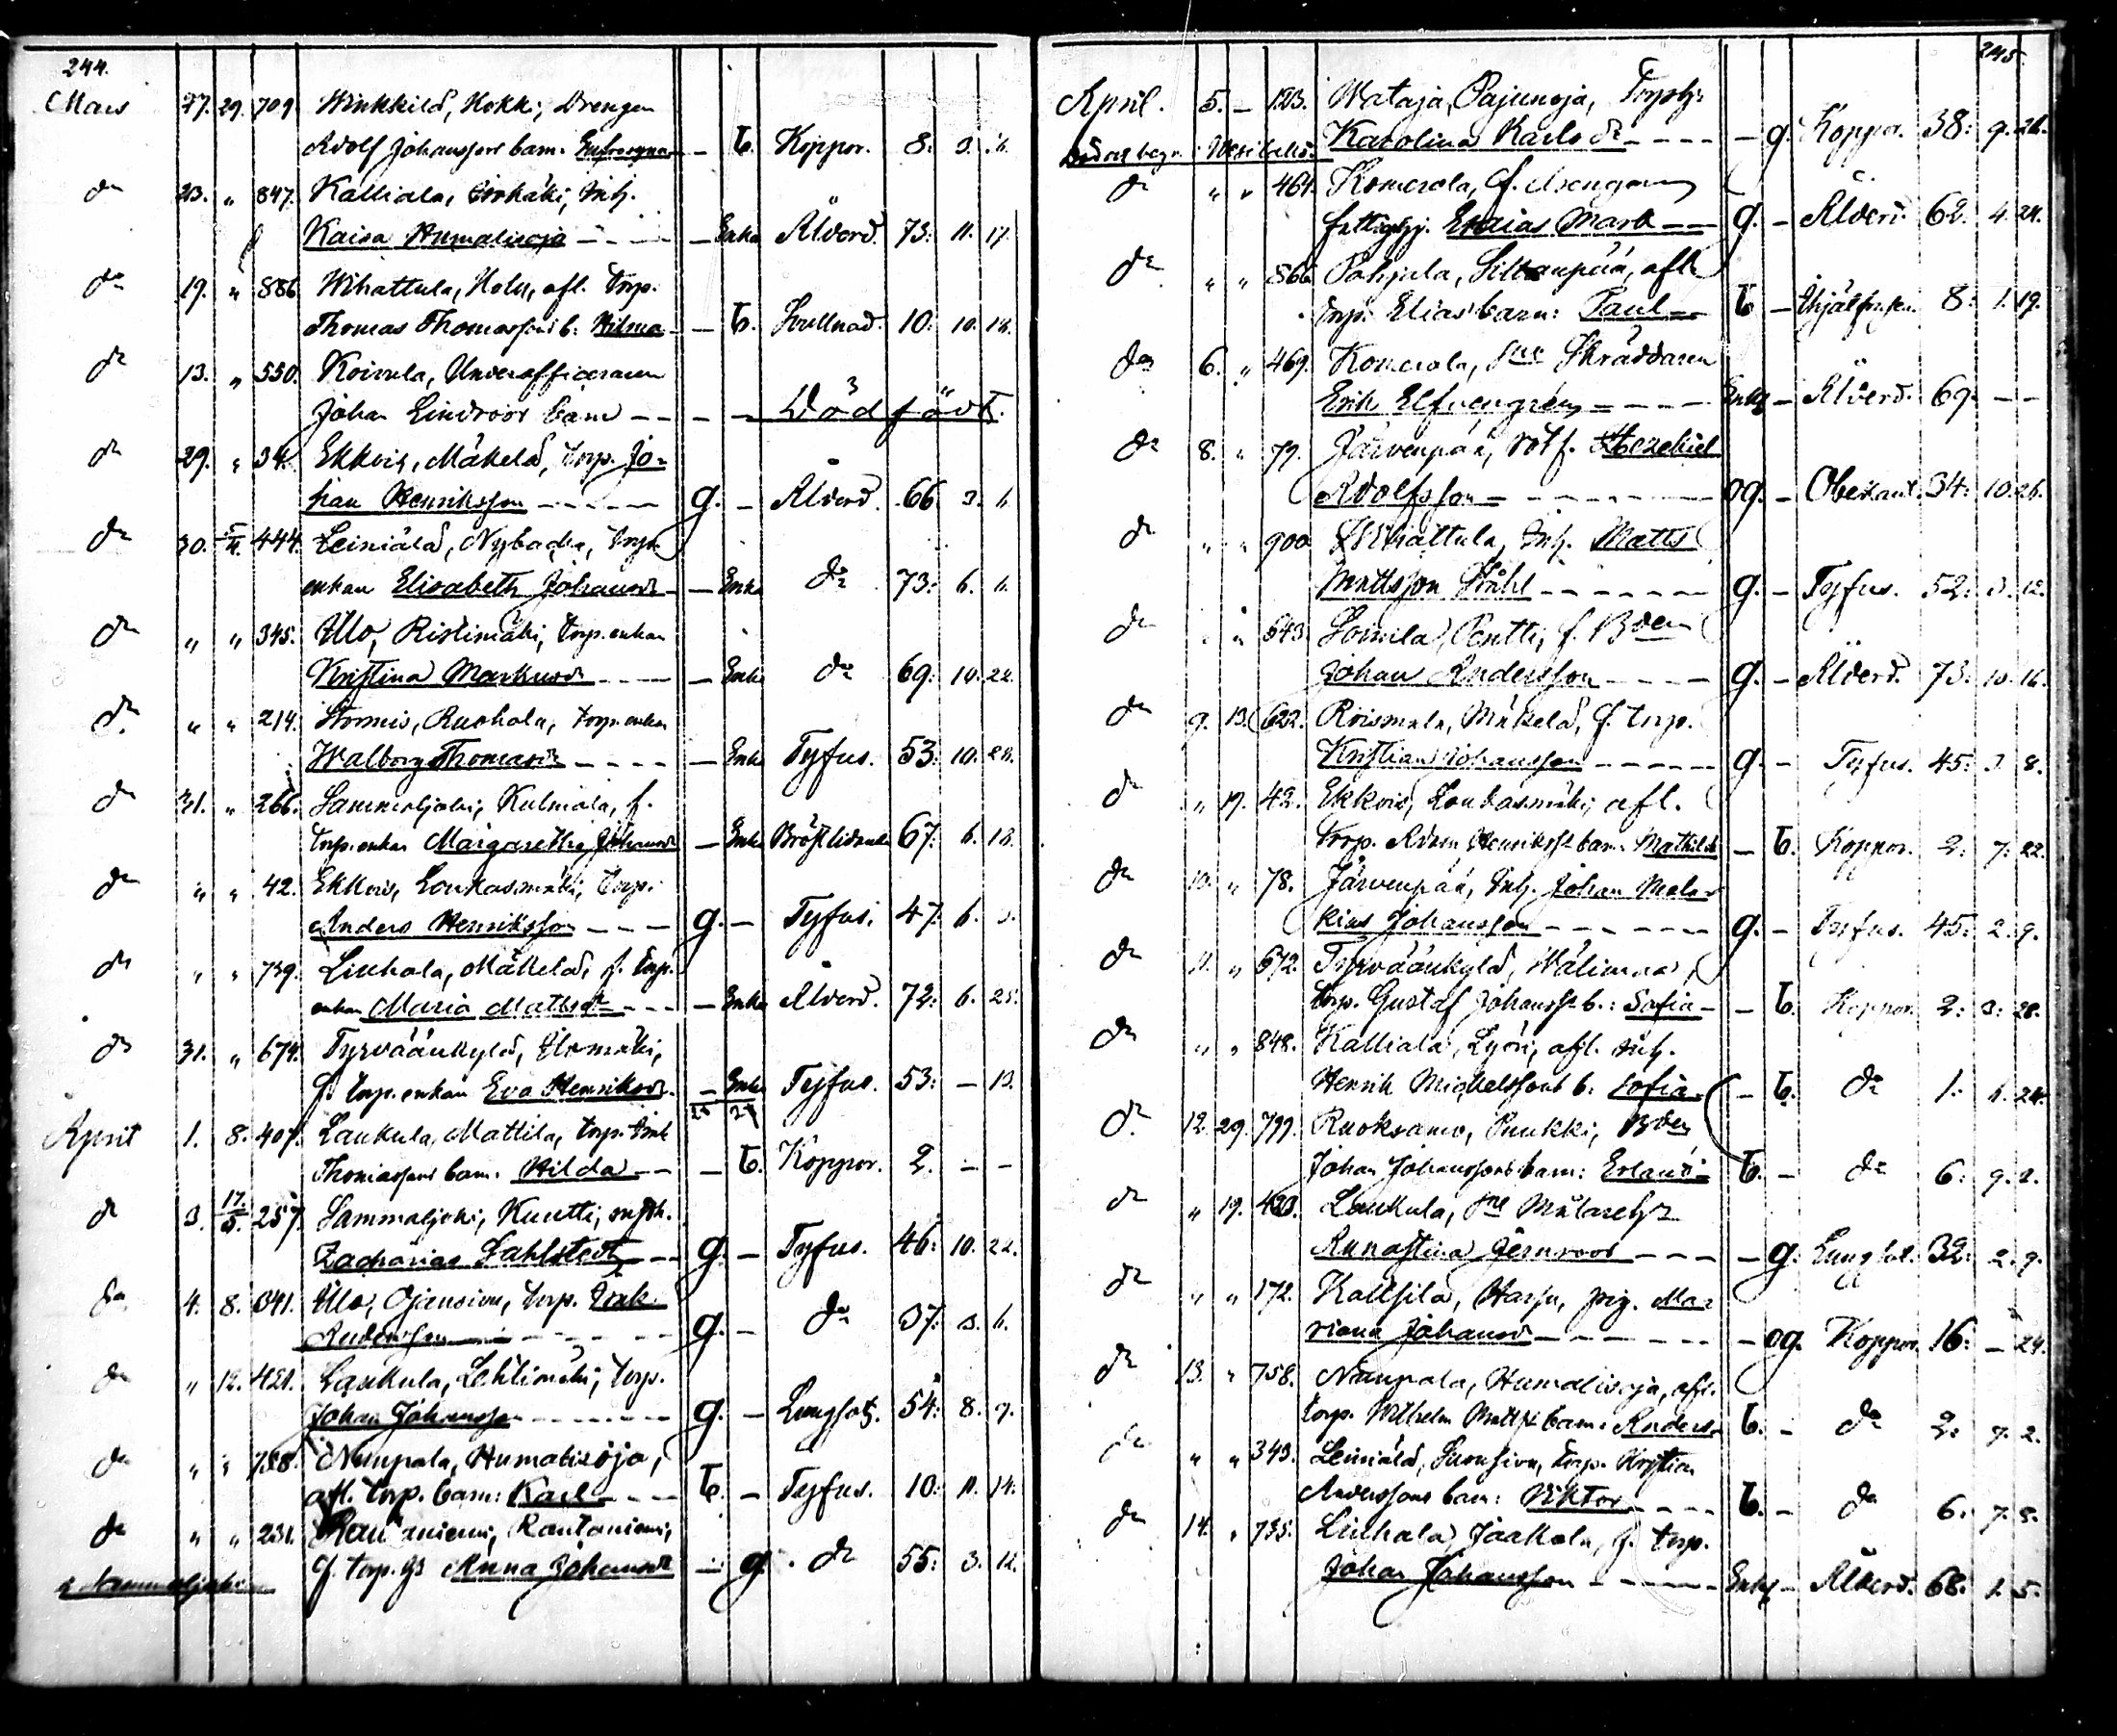 244.
Mars 27. 29. 709. Winkkilä, Kokki, Drengen
Adolf Johanssons barn: – b. Koppor. 8.
do 23. " 847. Kalliala, Inh.
Kaisa Humalisoja – – Enka Ålderd. 73: 11. 17.
do 19. " 886. Wihattula, afl. torp.
Thomas Thomassons b: Hilma – b. Svullnad. 10: 10. 18.
do 13. " 550. Koivula, Underofficeraren
Johan Lindroos barn – – – Död född.
do 29. " 34. Ekkois, Mäkelä, torp. Jo=
han Henriksson – – – g. – Ålderd. 66
do 30. 444. Leiniälä, Nybacka, torp.
enkan Elisabeth Johansdr – Enka do 73: 6.
do " " 345. Illo, Ristimäki, torp. enkan
Kristina Markusdr – – – Enka do 69: 10. 22.
do " " 214. Stormis, Ruohola, torp. enkan
Walborg Thomasdr – – – Enka Tyfus. 53: 10. 28.
do 31. " 266. Sammaljoki, Kulmala, f.
torp. enkan Margaretha Johansdr – Enka Bröstlidande 67: 6. 18.
do " " 42. Ekkois, Loukasmäki, torp.
Anders Henriksson – – – g. – Tyfus. 47: 6. 3.
do " " 739. Liuhala, Mäkelä, f. torp.
enkan Maria Mattsdr – – – Enka Ålderd. 72: 6. 25.
do 31. " 674. Tyrväänkylä,
f. torp. enkan Eva Henriksdr. – Enka Tyfus. 53: – 13.
April 1. 8. 407. Laukula, Mattila, torp.
Thomassons barn: Hilda – – – b. Koppor. 2. – –
do 3. 17/5. 257. Sammaljoki, Kuntti,
Zacharias Dahlstedt – – g. – Tyfus. 46: 10. 22.
do 4. 8. 341. Illo, Ojansivu, torp.
Andersson – – – g. – do 37: 3. 6.
do " 12. 421. Laukula, Lehtimäki, torp.
Johan Johansson – – – g. – Lungsot. 54: 8. 9.
do " " 758. Nuupala, Humalisoja,
afl. torp. barn: Karl – – – b. – Tyfus. 10: 11. 14.
do " " 231. Rautaniemi,
f. torp. hs Anna Johansdr – g. do 55: 3. 12.
i Sammaljoki
245.
April. 5. – 123. Wataja, Pajunoja, Torp hs
Karolina Karlsdr – – – – g. Koppor. 38: 9. 26.
do " " 464. Komerola, f. drengen
fattighj. Esaias Mark – – g. – Ålderd. 62: 4. 24.
do " " 866. Pohjala, Siltaanpää, afl.
torp. Elias barn: Paul – – b – 8: 1. 19.
do 6. " 469. Komerola, Skräddaren
Erik Elfvengren – – – – Enkl – Ålderd. 69. – –
do 8. " 79. Järvenpää, Hezekiel
Adolfsson – – – og. – Obekant. 34: 10. 26.
do " " 900. Wihattula, Inh. Matts
Mattsson Ståhl – – – g. – Tyfus. 52: 3. 12.
do " " 643. Pentti, f. Bden
Johan Andersson – – – g. – Ålderd. 73: 10. 16.
do 9. 13. 622. Roismala, Mäkelä, f. torp.
Kristian Johansson – – – g. – Tyfus. 45: 3. 8.
do " 19. 42. Ekkois, Loukasmäki, afl.
torp. Adam Henrikss. barn: Mathilda – b. Koppor. 2: 7. 22.
do 10. " 78. Järvenpää, Inh. Johan Mala=
kias Johansson – – – g. – Tyfus. 45: 2. 9.
do 11. " 672. Tyrväänkylä, Wälimaa,
torp. Gustaf Johanss. b.: Sofia – – b. Koppor. 2: 3. 28.
do " " 848. Kalliala, Lyöri, afl. inh.
Henrik Michelssons b: Sofia – b. do 1. 24.
do 12. 29. 799. Ruoksamo, Punkki, Bden
Johan Johanssons barn: Erland – b. – do 6. 9. 2.
do " 19. Laukula, Målare hs
Anna Stina – – – g. Lungsot. 32: 2. 9.
do " " 172. Kallsila, Harju, pig. Ma=
riana Johansdr – – – og. Koppor. 16: – 24.
do 13. " 758. Nuupala, Humalisoja, afl.
torp. Wilhelm Matts. barn: Anders – b. – do 2: 7. 2.
do " " 343. Leiniälä, torp. Kristian
Anderssons barn: Viktor – – – b. – do 6: 7. 8.
do 14. " 735. Liuhala, Jaakola, f. torp.
Johan Johansson – – – Enkl – Ålderd. 68. 1. 5.